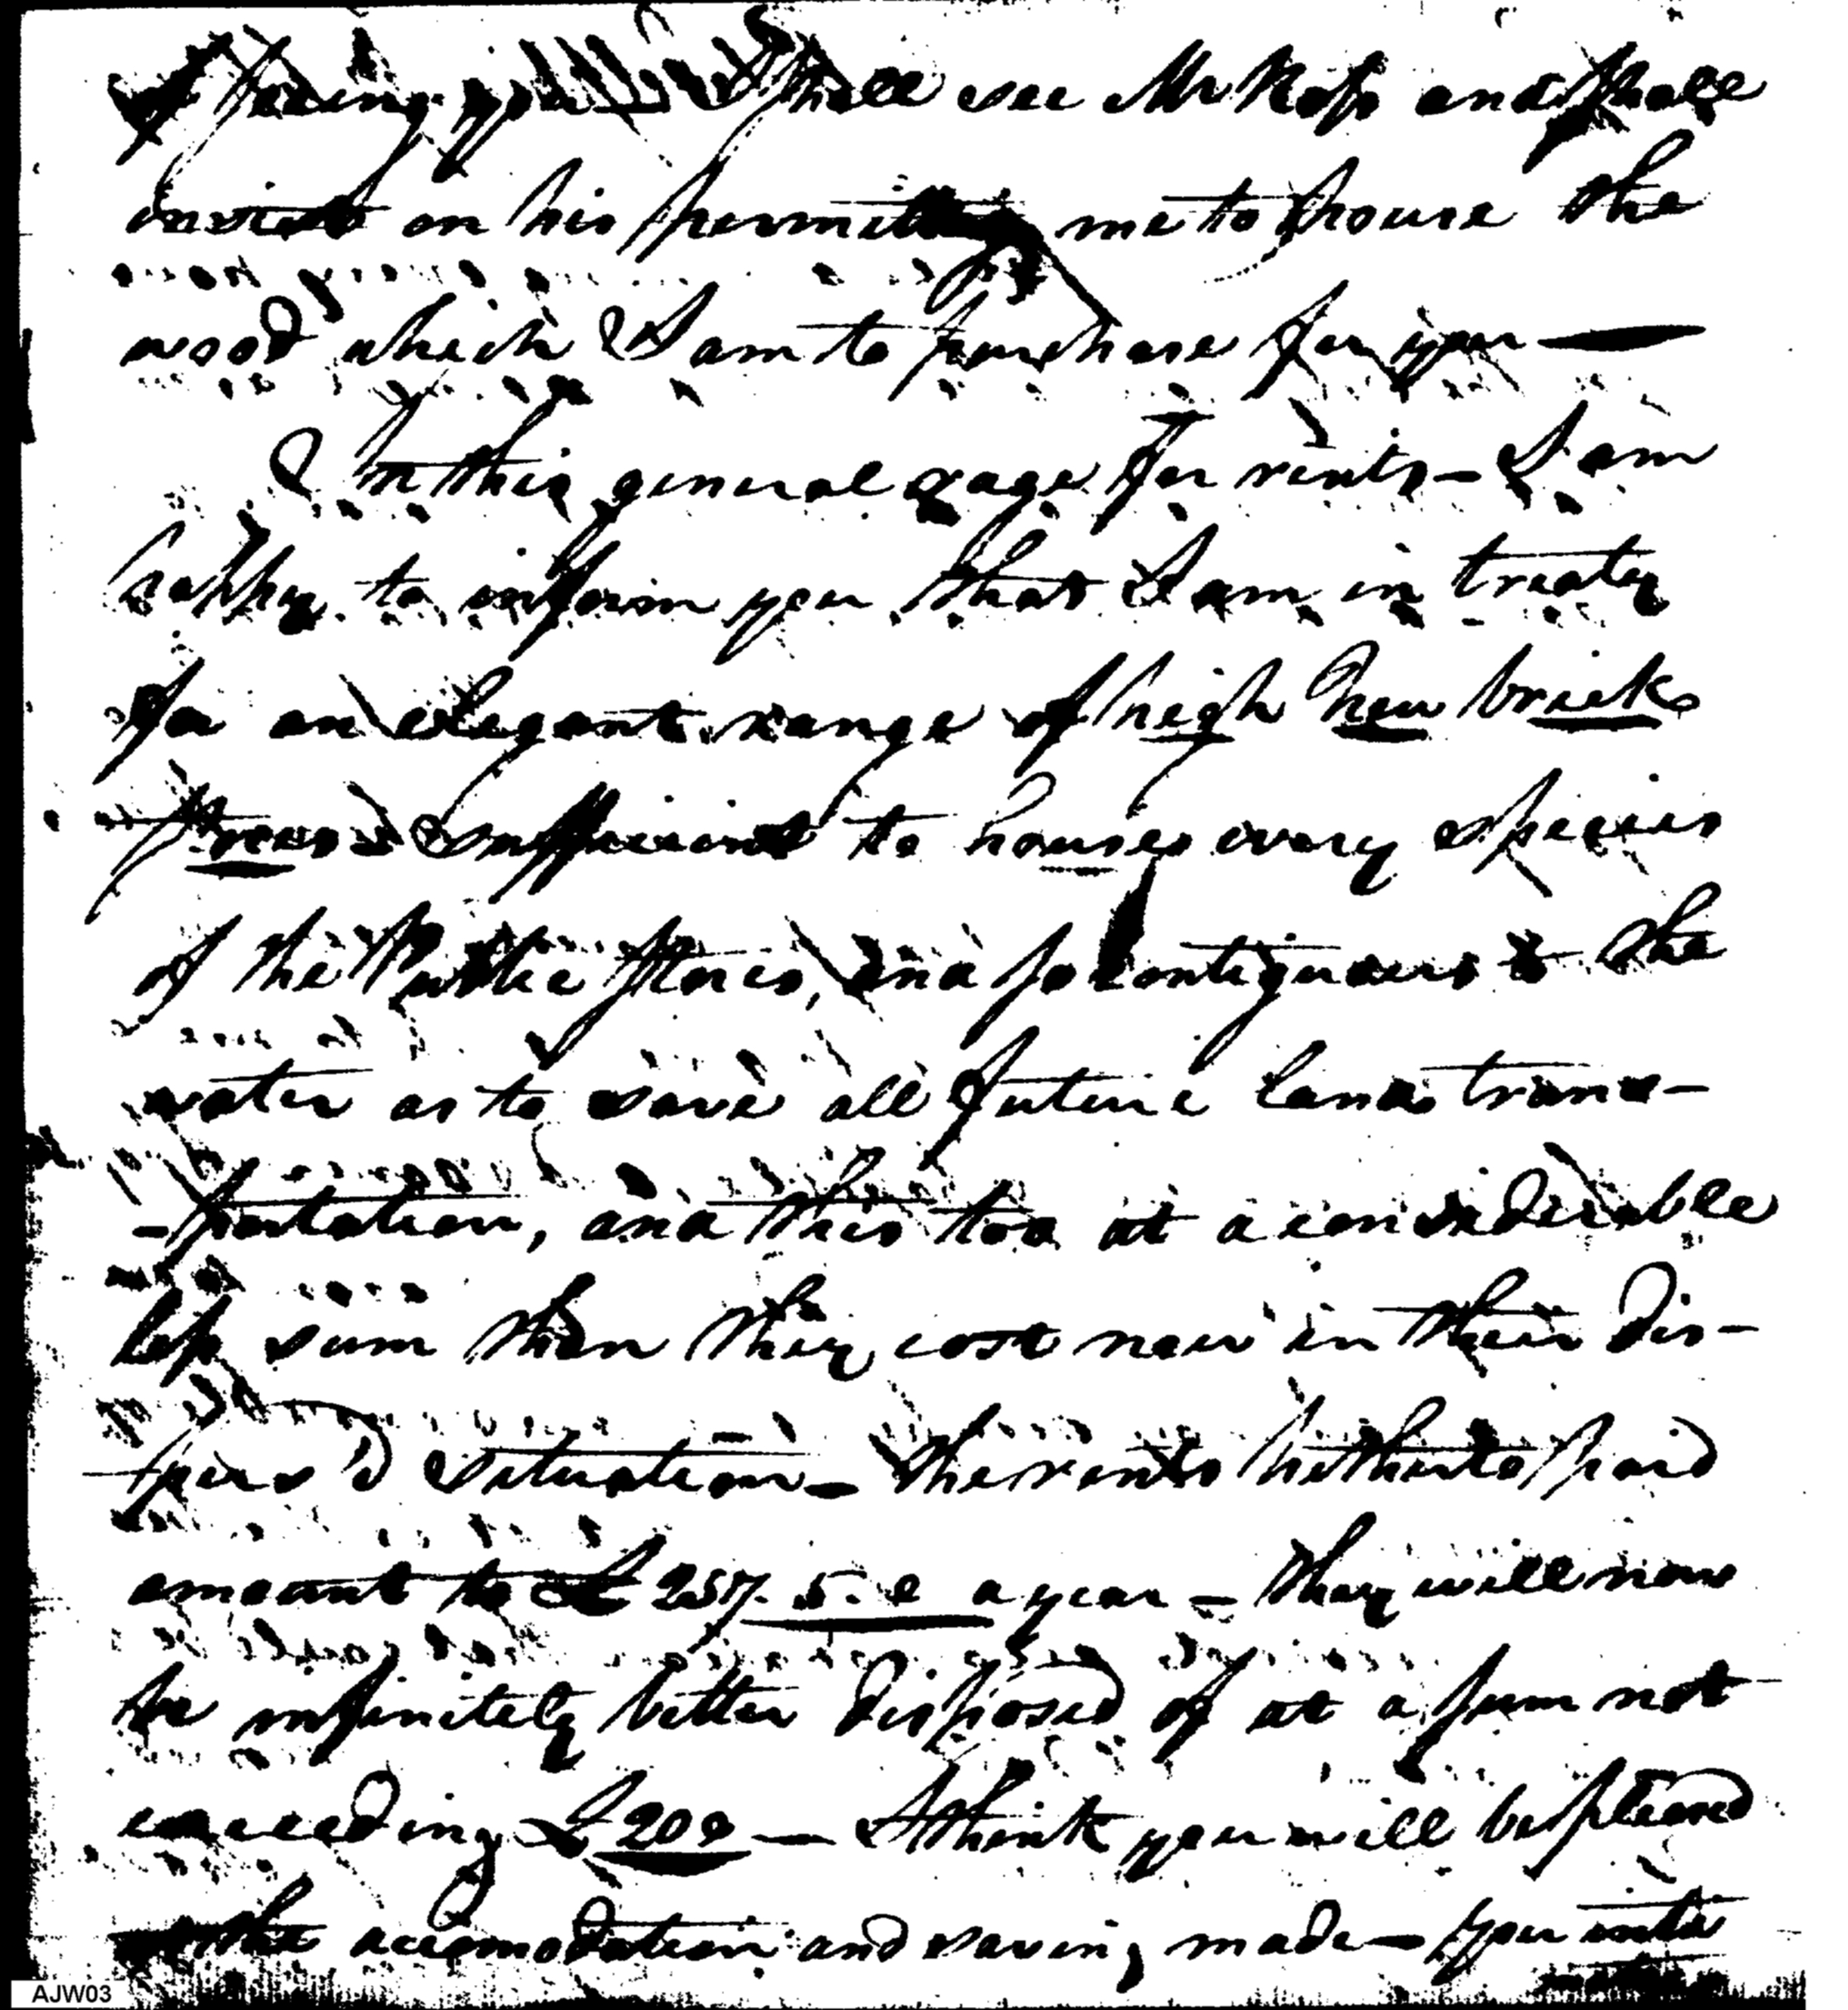 of seeing you — I shall see Mr Ross and shall
insist on his permitting me to house the
wood which I am to purchase for you —
In this general rage for rents — I am
happy to inform you that I am in treaty
for an elegant range of high new brick
stores sufficient to house every species
of the Public stores, and so contiguous to the
water as to save all future land trans-
-portation, and this too at a considerable
less sum than they cost now in their dis-
pers'd situation — the rents hitherto paid
amount to £257. 5. 0 a year — they will now
be infinitely better disposed of at a sum not
exceeding £200 — I think you will be pleased
the accomodation and saving made — your
AJW03